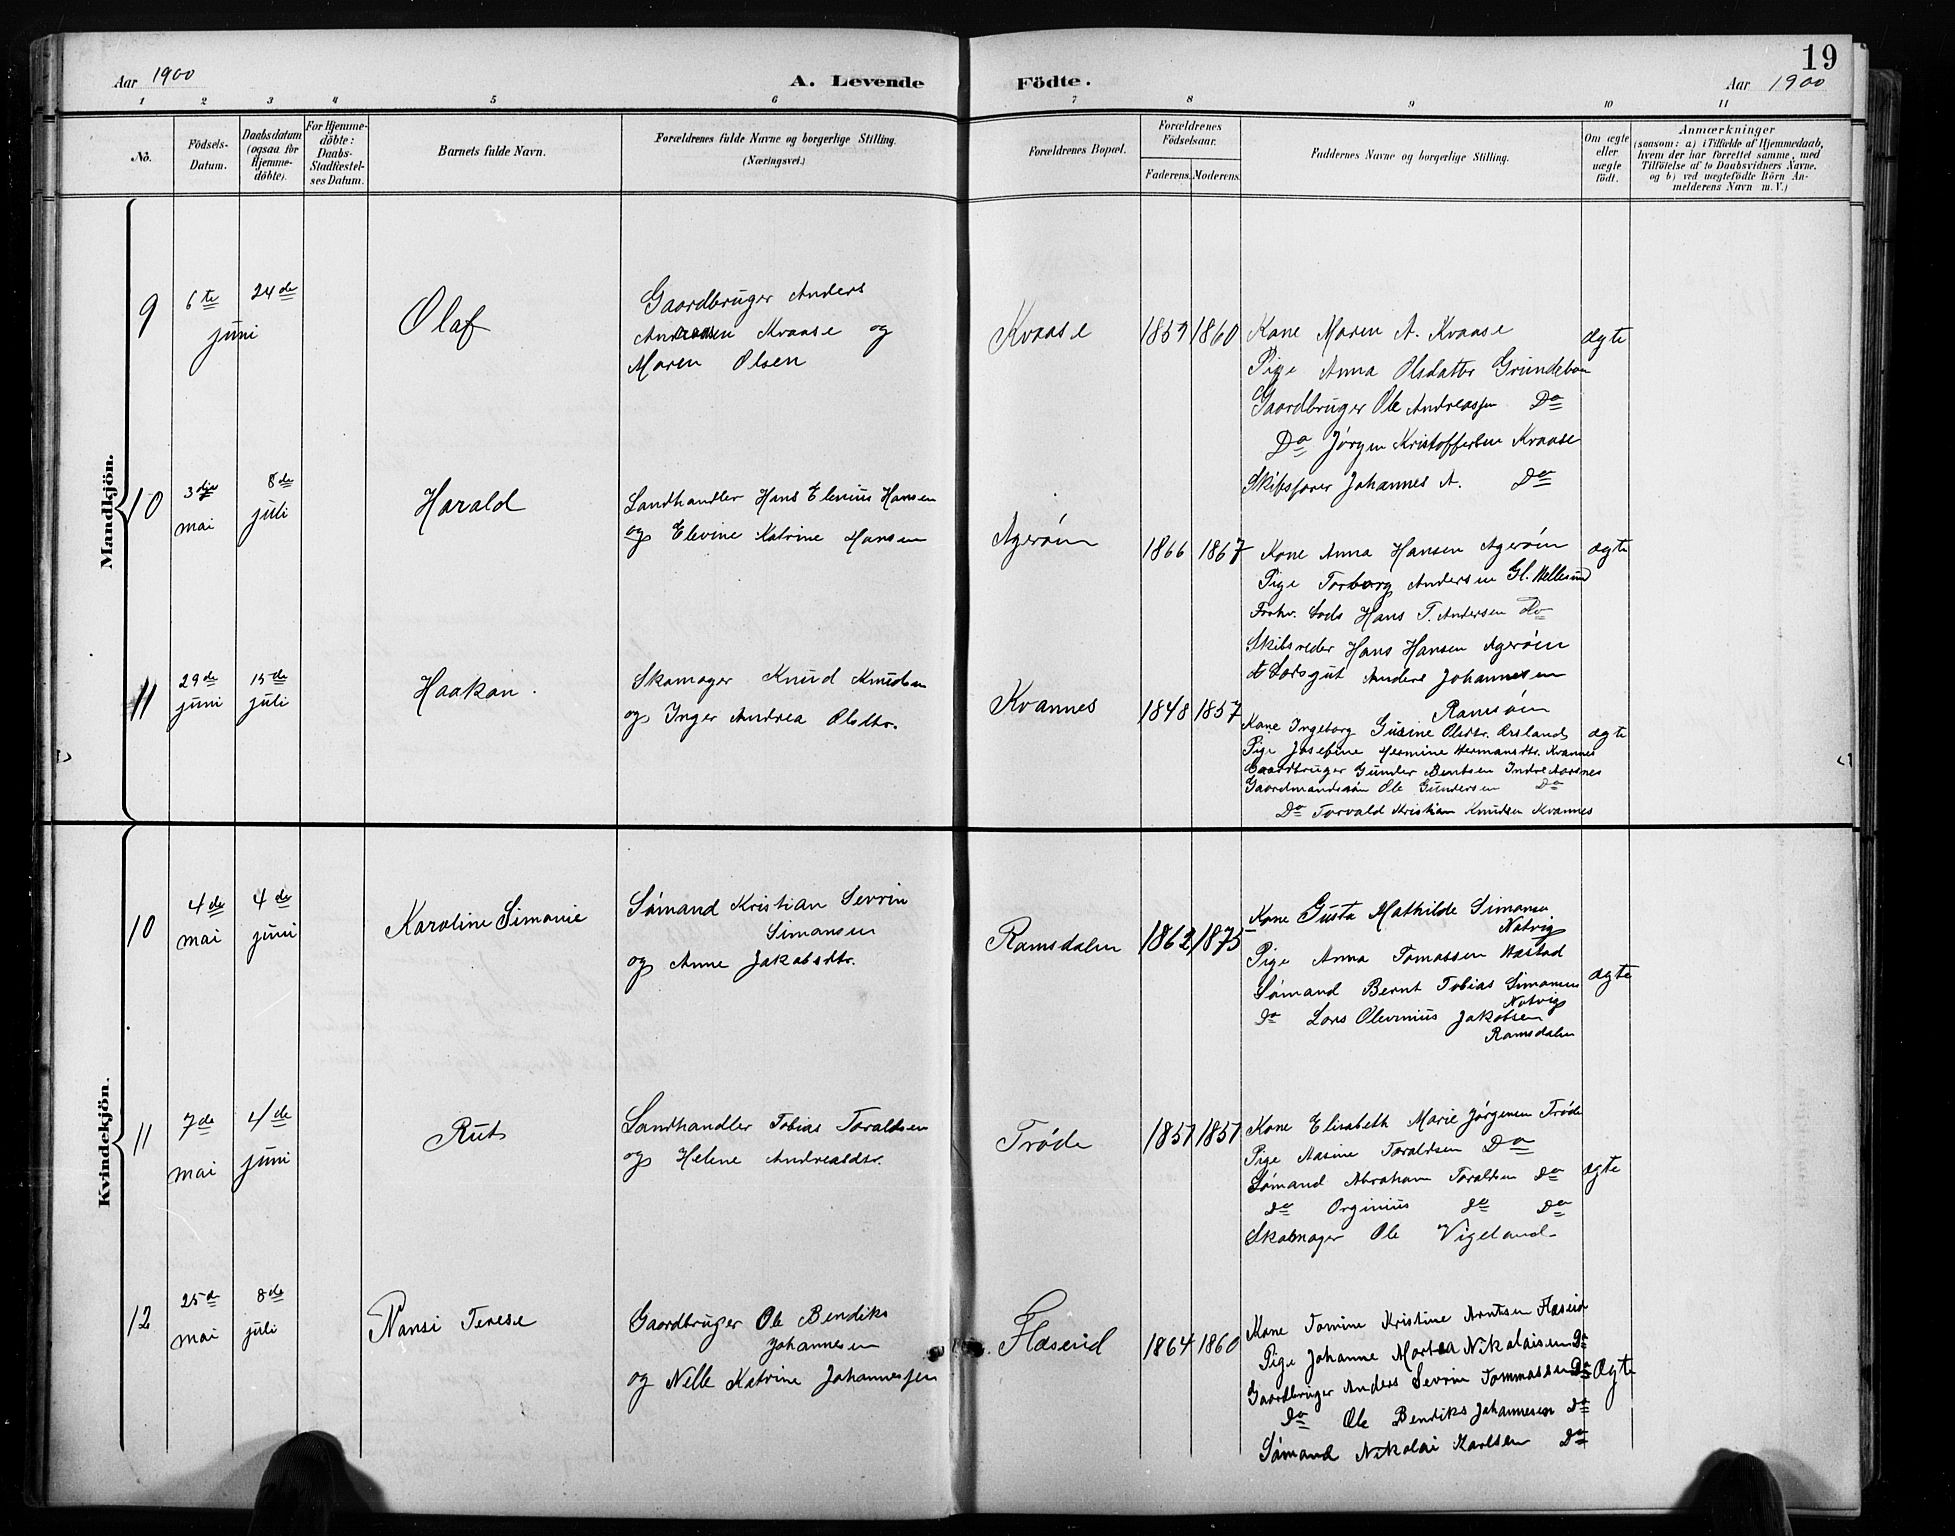 19
Aar 1900
A. Levende Födte.
Aar 1900
1 2 3 4 5 6 7 8 9 10 11
No.
Födsels-
Datum.
Daabsdatum
(ogsaa for
Hjemme-
döbte).
For Hjemme-
döbte:
Daabs-
Stadfæstel-
ses Datum.
Barnets fulde Navn.
Forældrenes fulde Navne og borgerlige Stilling.
(Næringsvei.)
Forældrenes Bopæl.
Forældrenes
Födselsaar.
Faderens. Moderens.
Faddernes Navne og borgerlige Stilling.
Om ægte
eller
uægte
födt.
Anmærkninger
(saasom: a) i Tilfælde af Hjemmedaab,
hvem der har forrettet samme, med
Tilföielse af to Daabsvidners Navne.
og b) ved uægtefödte Börn An-
melderens Navn m. V.)
Mandkjön.
9
6te
24de
juni
Olaf
Gaardbruger Anders
Andreasen Kvaase og
Maren Olsen
Kvaase
1859 1860
Kone Maren A. Kvaase
Pige Anna Olsdatter
Gaardbruger Ole Andreassen Do
Do Jörgen Kristoffersen Kvaase
Skibsförer Johannes A. Do
ægte
10
3die
mai
8de
juli
Harald
Landhandler Hans Elenius Hansen
og Elevine Katrine Hansen
Ageröen
1866 1867
Kone Anna Hansen Ageröen
Pige Torborg Andersen Gl. Hellesund
Hans T. Andersen Do
Skibsreder Hans Hansen Ageröen
Lodsgut Anders Johannesen
Ramsöen
ægte
11
29de
juni
15de
juli
Haakon.
Skomager Knud Knudsen
og Inger Andrea Olsdtr.
Kvannes
1848 1857
Kone Ingeborg Gusine Olsdtr. Örsland
Pige Josefine Hermine Hermansdtr. Kvannes
Gaardbruger Gunder Bentsen Indre Aarsnes
Gaardmandssön Ole Gundersen Do
Do Torvald Kristian Knudsen Kvannes
ægte
Kvindekjön.
10
4de
mai
4de
juni
Karoline Simonie
Sömand Kristian Sevrin
Simonsen
og Anne Jakobsdtr.
Ramsdalen
1862 1875
Kone Gusta Mathilde Simonsen
Notvig
Pige Anna Tomassen Hæstad
Sömand Bernt Tobias Simonsen
Notvig
Do Lars Olevinius Jakobsen
Ramsdalen
ægte
11
7de
mai
4/de
juni
Rut
Landhandler Tobias Toraldsen
og Helene Andreasdtr.
Tröde
1857 1857
Kone Elisabeth Marie Jörgensen Tröde
Pige Aasine Toraldsen Do
Sömand Abraham Toraldsen Do
Do Orginius Do Do
Skomager Ole Vigeland
ægte
12
25de
mai
8de
juli
Nansi Terese
Gaardbruger Ole Bendiks
Johannesen
og Nille Katrine Johannessen
Flaserid
1864 1860
Kone Tomine Kristine Arntsen
Pige Johanne Martea Nikolaisen Do
Gaardbruger Anders Sevrin Tommassen Do
Do Ole Bendiks Johannesen Do
Sömand Nikolai Karlsen Do
Ægte